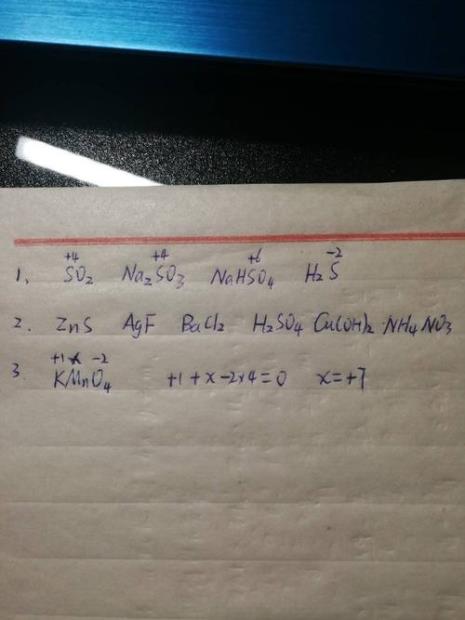 +4 +4 +6 -2
1、 SO2 Na2SO3 NaHSO4 H2S
2. ZnS AgF BaCl2 H2SO4 Cu(OH)2 NH4NO3
+1 x -2
3. KMnO4 +1+x-2×4=0 x=+7